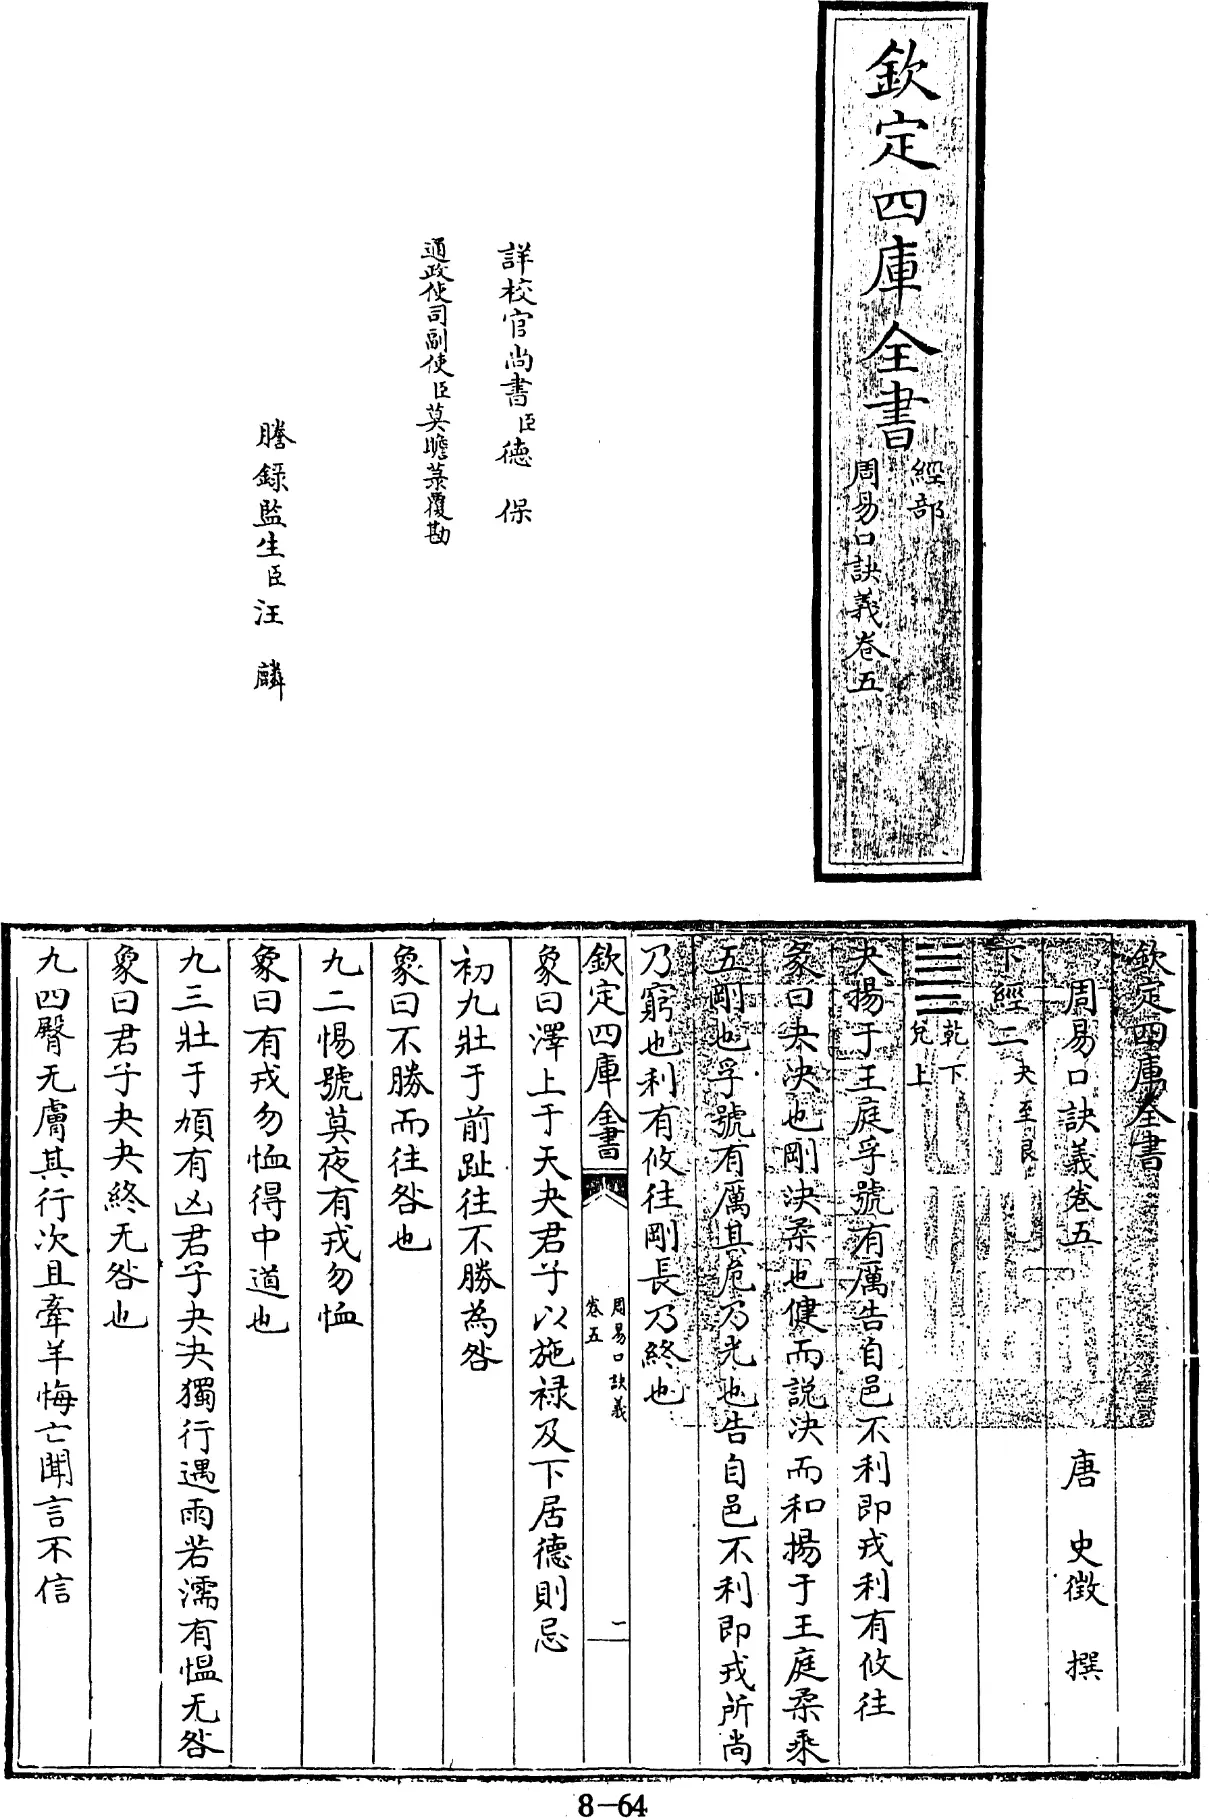 欽定四庫全書
經部
周易口訣義卷五
詳校官尚書臣德保
通政使司副使臣莫瞻菉覆勘
謄錄監生臣汪麟
欽定四庫全書
周易口訣義卷五 唐 史徵 撰
下經二 夬至艮
乾下
兌上
夬揚于王庭孚號有厲告自邑不利即戎利有攸往
彖曰夬决也剛决柔也健而説决而和揚于王庭柔乘
五剛也孚號有厲其危乃光也告自邑不利即戎所尚
乃窮也利有攸往剛長乃終也
欽定四庫全書
周易口訣義
卷五
一
象曰澤上于天夬君子以施祿及下居德則忌
初九壯于前趾往不勝為咎
象曰不勝而往咎也
九二惕號莫夜有戎勿恤
象曰有戎勿恤得中道也
九三壯于頄有凶君子夬夬獨行遇雨若濡有愠无咎
象曰君子夬夬終无咎也
九四臀无膚其行次且牽羊悔亡聞言不信
8-64